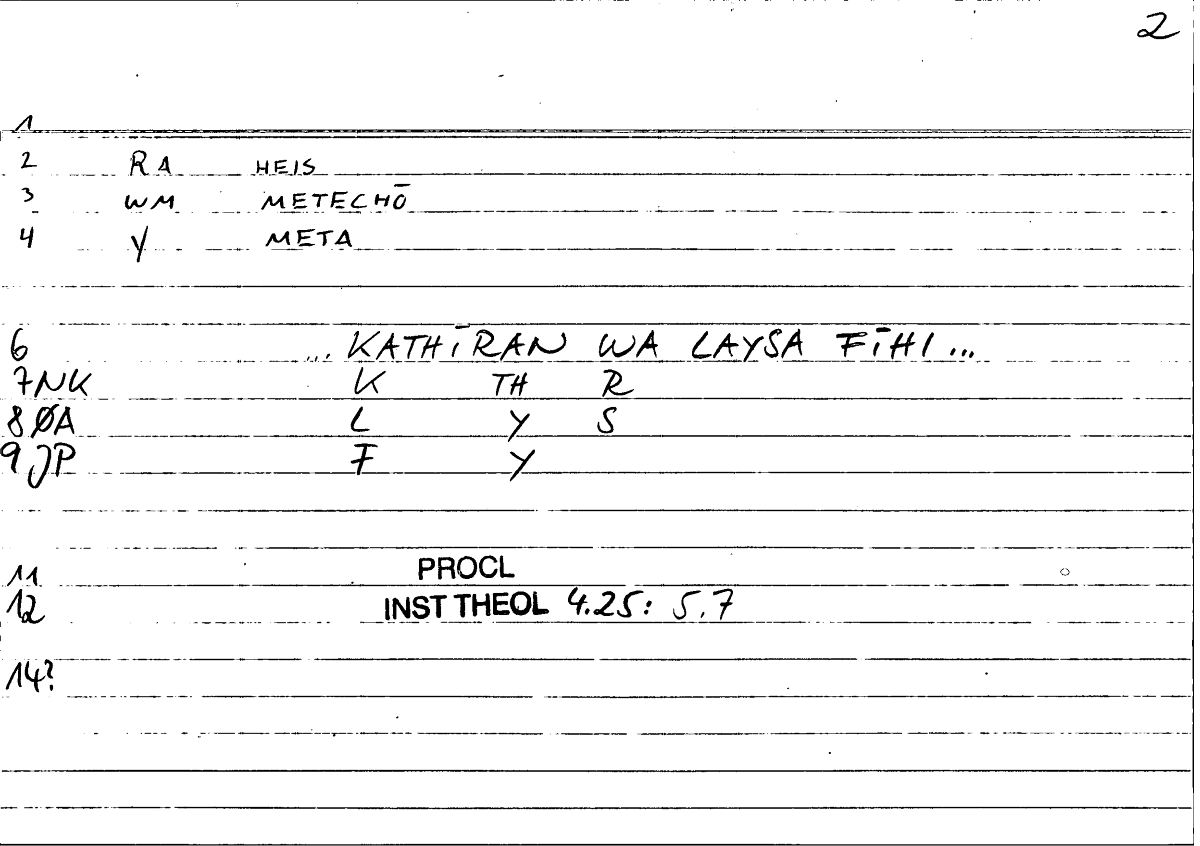 2
1
2 RA HEIS
3 WM METECHŌ
4 Y META
6 ... KATHĪRAN WA LAYSA FĪHI ...
7 NK K TH R
8 ØA L Y S
9 JP F Y
11 PROCL
12 INST THEOL 4.25: 5.7
14?